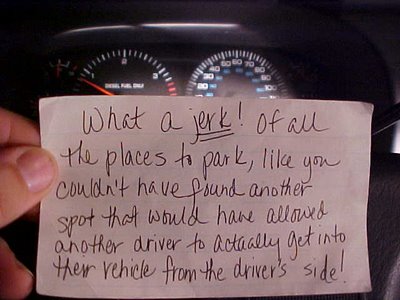 DIESEL FUEL ONLY
What a jerk! Of all
the places to park, like you
couldn't have found another
spot that would have allowed
another driver to actually get into
their vehicle from the driver's side!